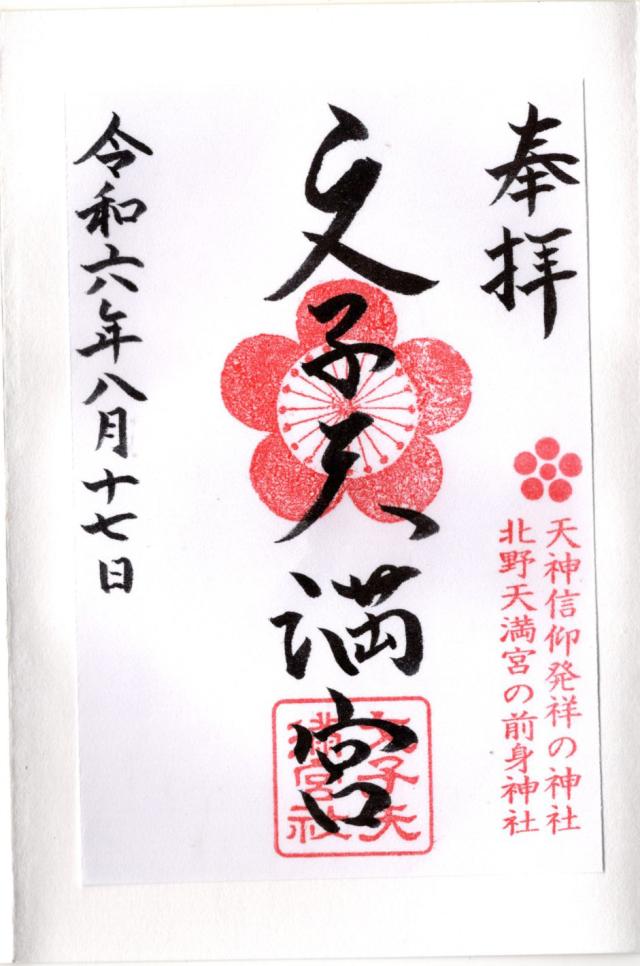 奉拝
天神信仰発祥の神社
北野天満宮の前身神社
文子天満宮
文子天
満宮社
令和六年八月十七日